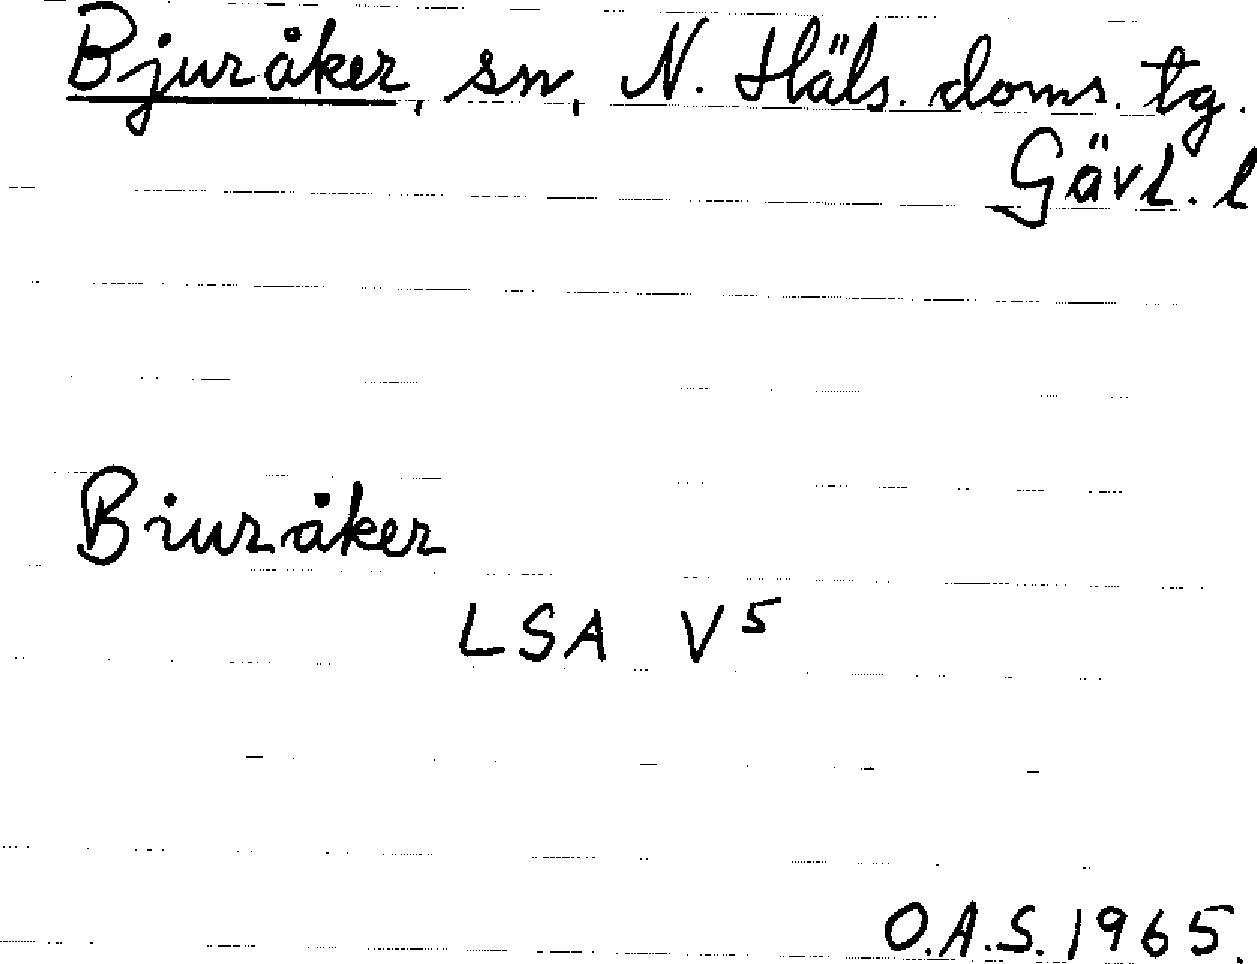 Bjuråker, sn, N. Häls. doms. tg.
Gävl. l
Biuråker
LSA V5
O.A.S. 1965.